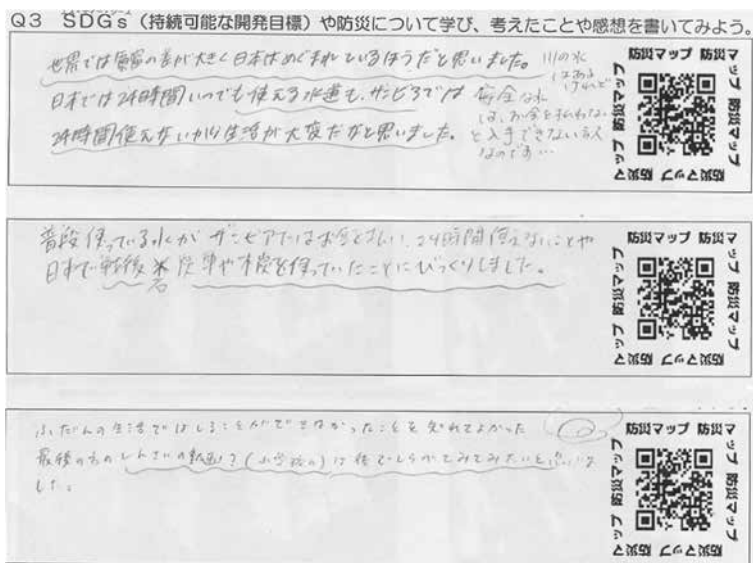 Q3 SDGs(持続可能な開発目標)や防災について学び、考えたことや感想を書いてみよう。
世界では貧富の差が大きく日本はめぐまれているほうだと思いました。
日本では24時間いつでも使える水道も、ザンビアでは
24時間使えないから生活が大変だなと思いました。
川の水
はある
けれど
安全な水
は、お金を払わない
と入手できない
なのです…
防災マップ 防災マップ 防災マップ 防災マップ 防災マップ
普段使っている水がザンビアではお金をはらい、24時間使えないことや
日本で戦後 炭や木炭を使っていたことにびっくりしました。
防災マップ 防災マップ 防災マップ 防災マップ 防災マップ
ふだんの生活ではしることができなかったことを知れてよかった
最後の方のしんさいの動画?(小学校の)は後でしらべてみてみたいと思いま
した。
防災マップ 防災マップ 防災マップ 防災マップ 防災マップ